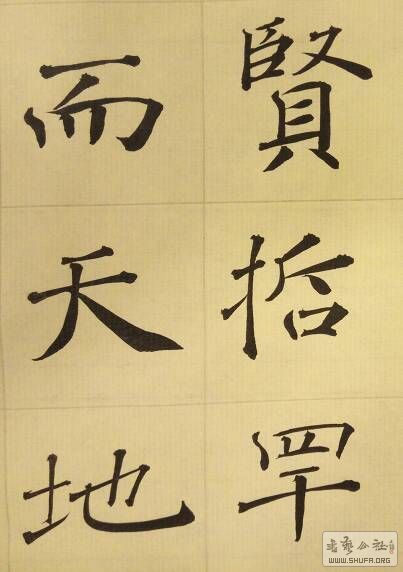 賢哲罕
而天地
书艺公社
WWW.SHUFA.ORG